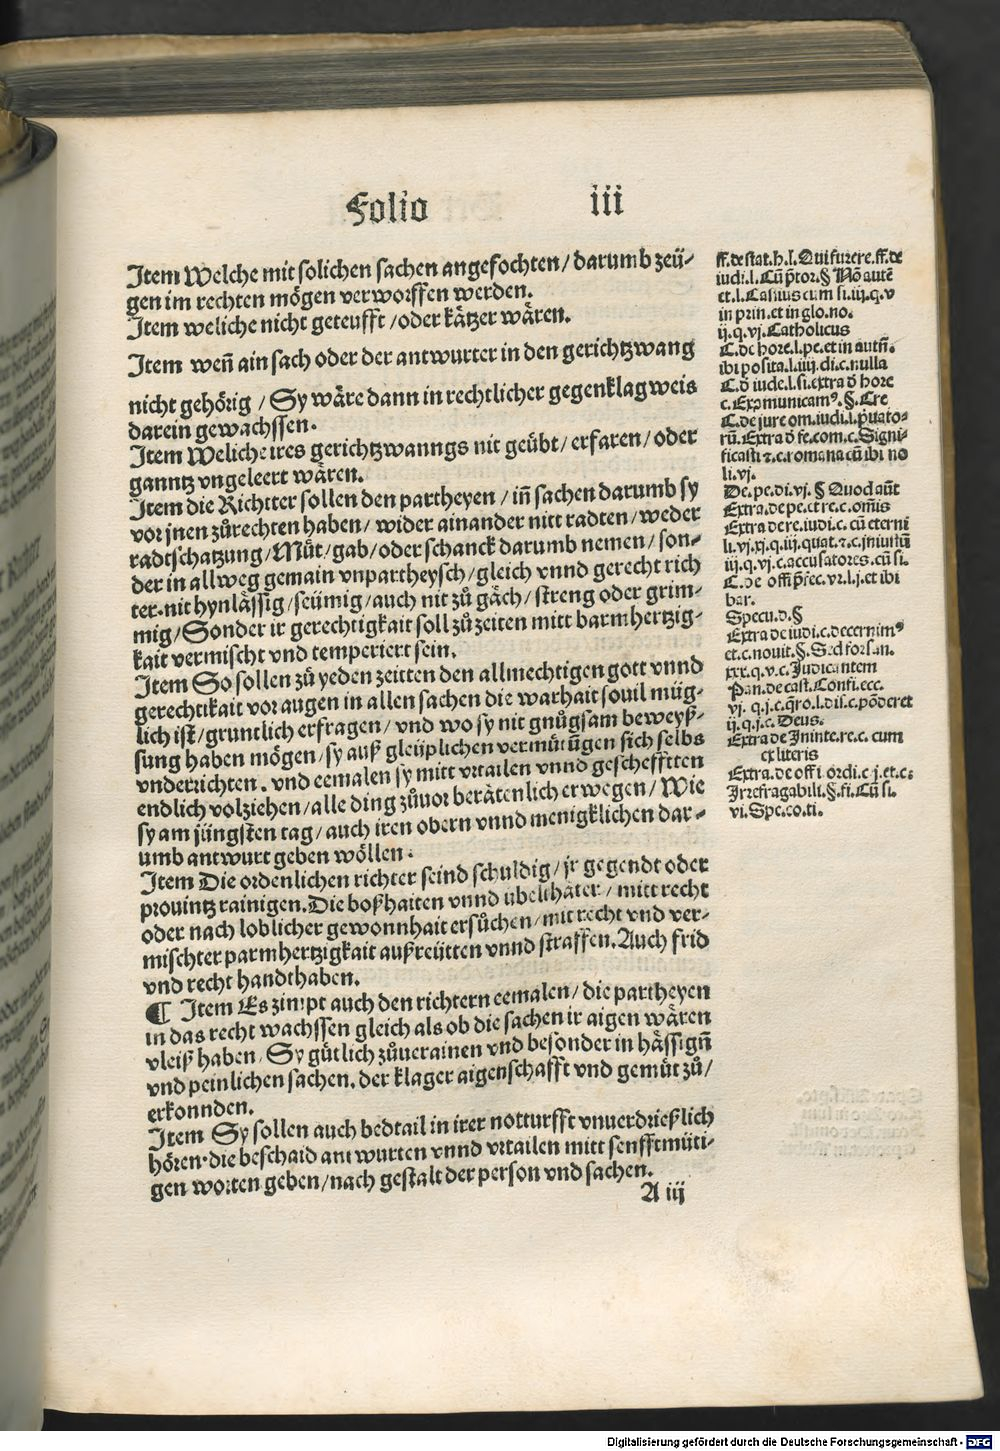 Folio iii
Item Welche mit solichen sachen angefochten / darumb zeü-
gen im rechten mögen verworffen werden.
Item weliche nicht geteufft / oder kätzer wären.
Item wen̄ ain sach oder der antwurter in den gerichtzwang
nicht gehörig / Sy wäre dann in rechtlicher gegenklag weis
darein gewachssen.
Item Weliche ires gerichtzwanngs nit geübt / erfaren / oder
ganntz vngeleert wären.
Item die Richtter sollen den partheyen / in̄ sachen darumb sy
vor jnen zůrechten haben / wider ainander nitt radten / weder
radtschatzung / Müt / gab / oder schanck darumb nemen / son-
der in allweg gemain vnpartheysch / gleich vnnd gerecht rich
ter. nit hynlässig / seümig / auch nit zů gäch / streng oder grim-
mig / Sonder ir gerechtigkait soll zů zeiten mitt barmhertzig-
kait vermischt vnd temperiert sein.
Item So sollen zů yeden zeitten den allmechtigen gott vnnd
gerechtikait vor augen in allen sachen die warhait souil müg-
lich ist / gruntlich erfragen / vnd wo sy nit gnůgsam beweyß-
sung haben mögen / sy auß gleüplichen vermütügen sich selbs
vnderrichten. vnd eemalen sy mitt vrtailen vnnd gescheffften
endlich volziehen / alle ding zůuor berätenlich erwegen / Wie
sy am jüngsten tag / auch iren obern vnnd menigklichen dar-
umb antwurt geben wöllen.
Item Die ordenlichen richter seind schuldig / jr gegendt oder
prouintz rainigen. Die boßhaiten vnnd übelthäter / mitt recht
oder nach loblicher gewonnhait ersůchen / mit recht vnd ver-
mischter parmhertzigkait außreütten vnnd straffen. Auch frid
vnd recht handthaben.
¶ Item Es zimpt auch den richtern eemalen / die partheyen
in das recht wachssen gleich als ob die sachen ir aigen wären
vleiß haben. Sy gütlich zůuerainen vnd besonder in hässign̄
vnd peinlichen sachen. der klager aigenschafft vnd gemüt zů /
erkonnden.
Item Sy sollen auch bedtail in irer notturfft vnuerdrießlich
hören. die beschaid antwurten vnnd vrtailen mitt senfftmüti-
gen worten geben / nach gestalt der person vnd sachen.
A iij
ff. de stat. h. l. Qui furere. ff. de
iudi. l. Cū p̄tor. § Nō autē
et. l. Cassius cum si. iij. q. v
in prin. et in glo. no.
ij. q. vj. Catholicus
C. de hore. l. pe. et in autn̄.
ibi posita. l. iiij. di. c. nulla
C. ð iude. l. si. extra ð hore
c. Excomunicam⁹. §. Cre
C. de jure om. iudi. l. p̄uato-
rū. Extra ð fe. com. c. Signi-
ficasti ⁊. c. romana cū ibi no
li. vj.
De. pe. di. vj. § Quod aūt
Extra. de pe. et re. c. om̄is
Extra de re. iudi. c. cū eterni
li. vj. xj. q. iij. quat. ⁊. c. iniustū
iij. q. vj. c. accusatores. cū si.
C. de offi p̄fec. vr. l. j. et ibi
bar.
Specu. d. §
Extra de iudi. c. decernim⁹
et. c. nouit. §. Sed forsan.
xxx. q. v. c. Judicantem
Pan. de cast. Consi. ecc.
vj. q. j. c. q̄ro. l. dis. c. pōderet
ij. q. j. c. Deus.
Extra de Ininte. re. c. cum
ex literis
Extra. de offi ordi. c j. et. c.
Irrefragabili. §. fi. Cū si.
vi. Spe. eo. ti.
Digitalisierung gefördert durch die Deutsche Forschungsgemeinschaft - DFG